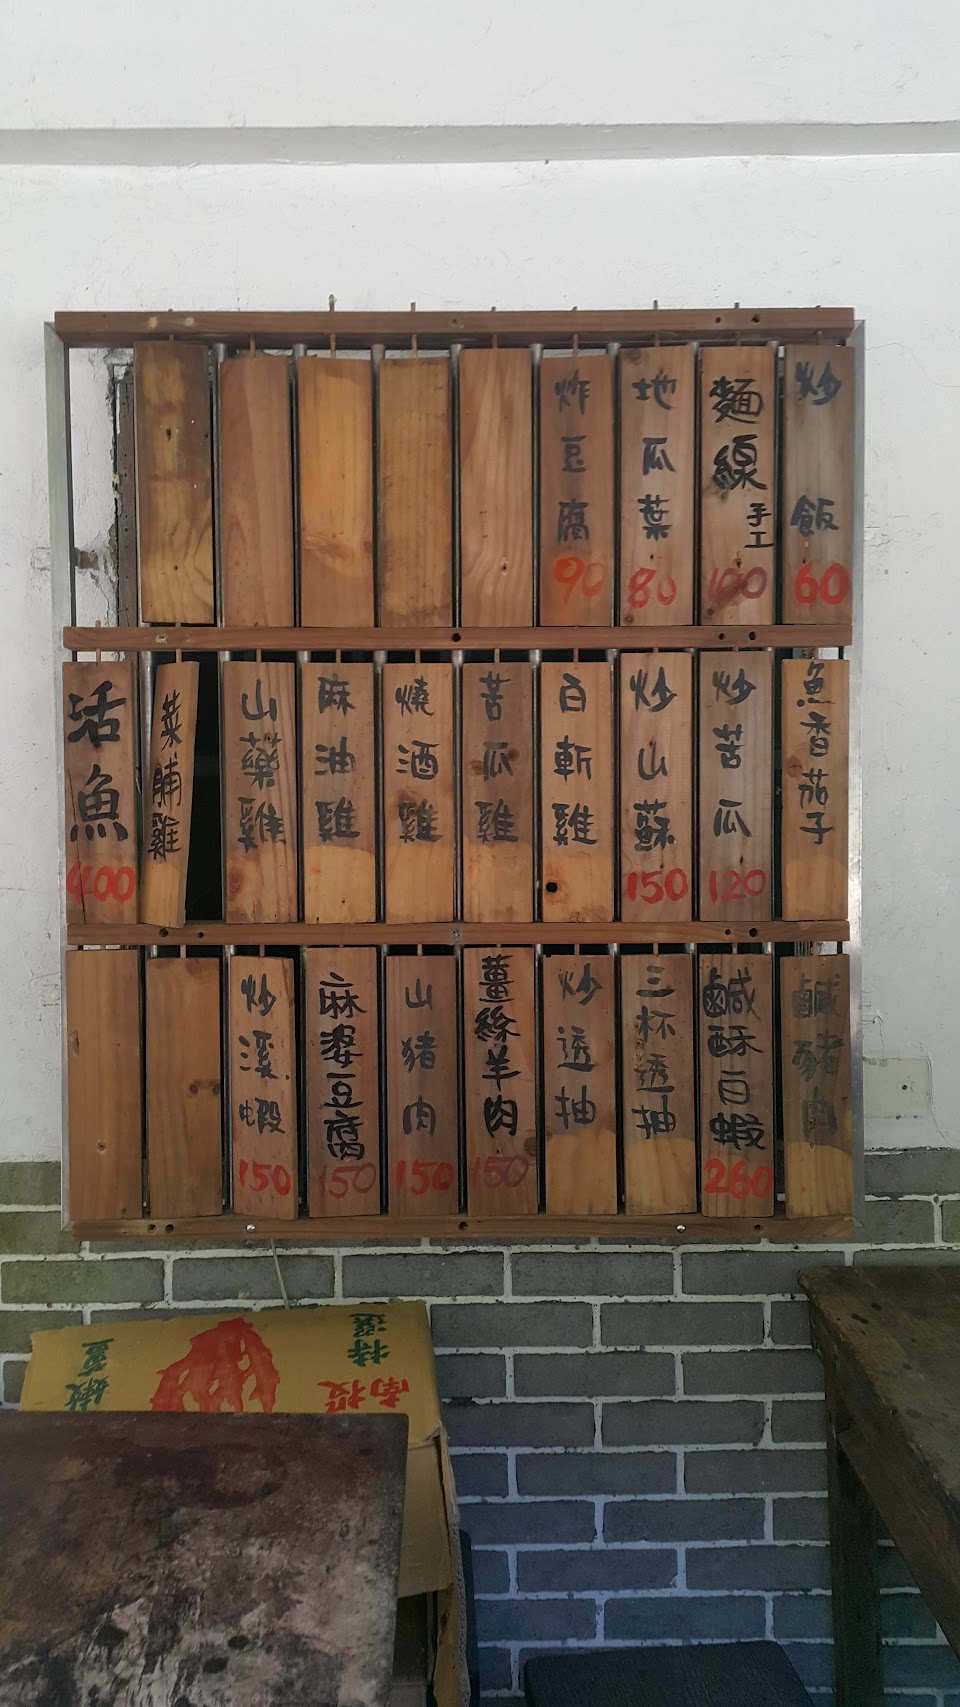 炒飯 60
麵線 手工 100
地瓜葉 80
炸豆腐 90
魚香茄子
炒苦瓜 120
炒山蘇 150
白斬雞
苦瓜雞
燒酒雞
麻油雞
山藥雞
菜脯雞
活魚 400
鹹豬肉
鹹酥白蝦 260
三杯透抽
炒透抽
薑絲羊肉 150
山猪肉 150
麻婆豆腐 150
炒溪蝦 150
特選
南投
嫩薑